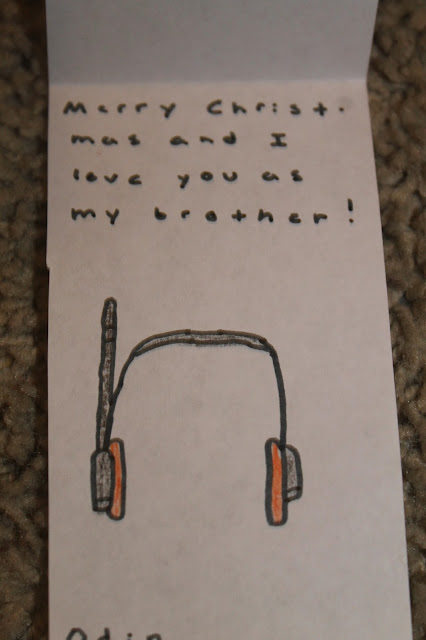 Merry Christ-
mas and I
love you as
my brother!
Odin